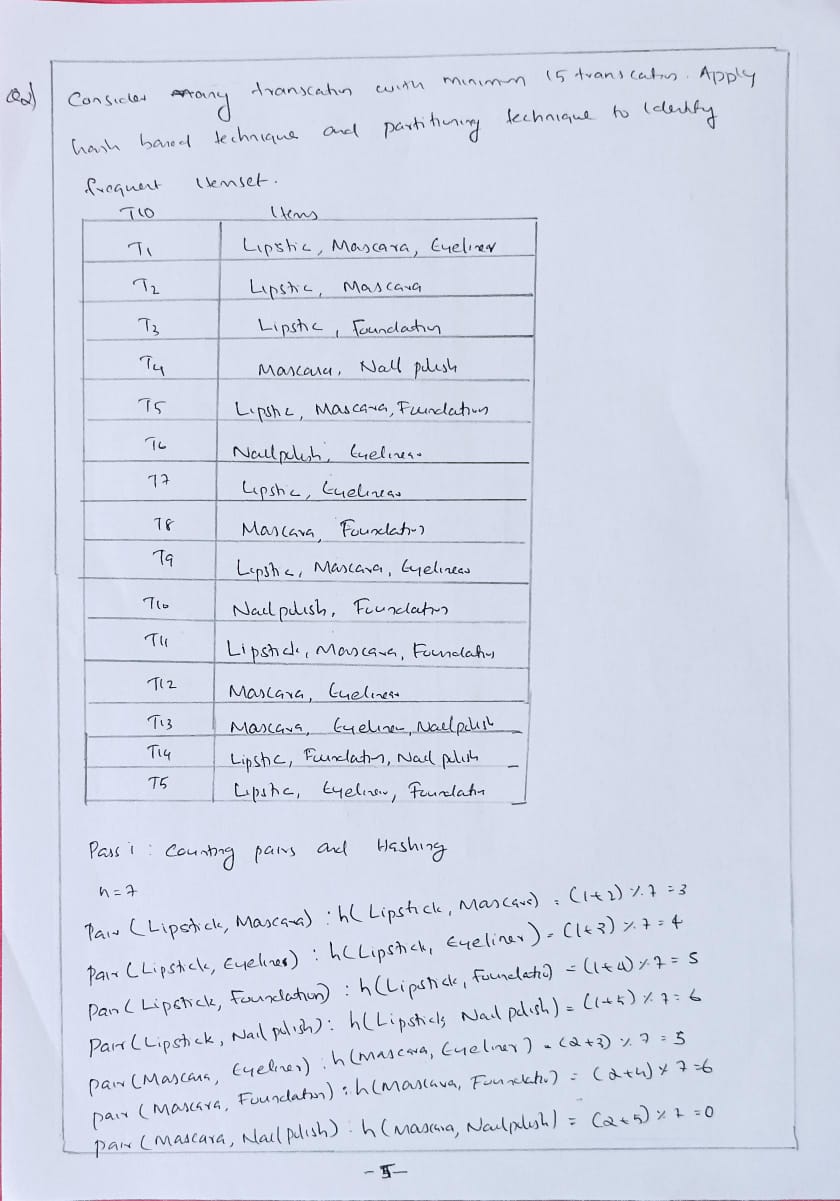 Q2) Consider any transcatn with minimum 15 transcatns. Apply
hash based technique and partitiuning technique to Identify
frequent Itemset.
TID Items
T1 Lipstic, Mascara, Eyeliner
T2 Lipstic, Mascara
T3 Lipstic, Foundatin
T4 Mascara, Nall polish
T5 Lipstic, Mascara, Foundation
T6 Nailpolish, Eyeliner
T7 Lipstic, Eyeliner
T8 Mascara, Foundation
T9 Lipstic, Mascara, Eyeliner
T10 Nailpolish, Foundation
T11 Lipstick, Mascara, Foundation
T12 Mascara, Eyeliner
T13 Mascara, Eyeliner, Nailpolish
T14 Lipstic, Foundation, Nail polish
T5 Lipstic, Eyeliner, Foundatin
Pass 1 : Counting pairs and Hashing
n=7
Pair (Lipstick, Mascara) : h(Lipstick, Mascara) = (1+2) % 7 = 3
Pair (Lipstick, Eyeliner) : h(Lipstick, Eyeliner) = (1+3) % 7 = 4
Pair (Lipstick, Foundation) : h(Lipstick, Foundatio) = (1+4) % 7 = 5
Pair (Lipstick, Nail polish) : h(Lipstick, Nail polish) = (1+5) % 7 = 6
pair (Mascara, Eyeliner) : h(mascara, Eyeliner) = (2+3) % 7 = 5
pair (Mascara, Foundation) : h(mascara, Foundatio) = (2+4) % 7 = 6
pair (Mascara, Nail polish) : h(mascara, Nailpolish) = (2+5) % 7 = 0
-5-